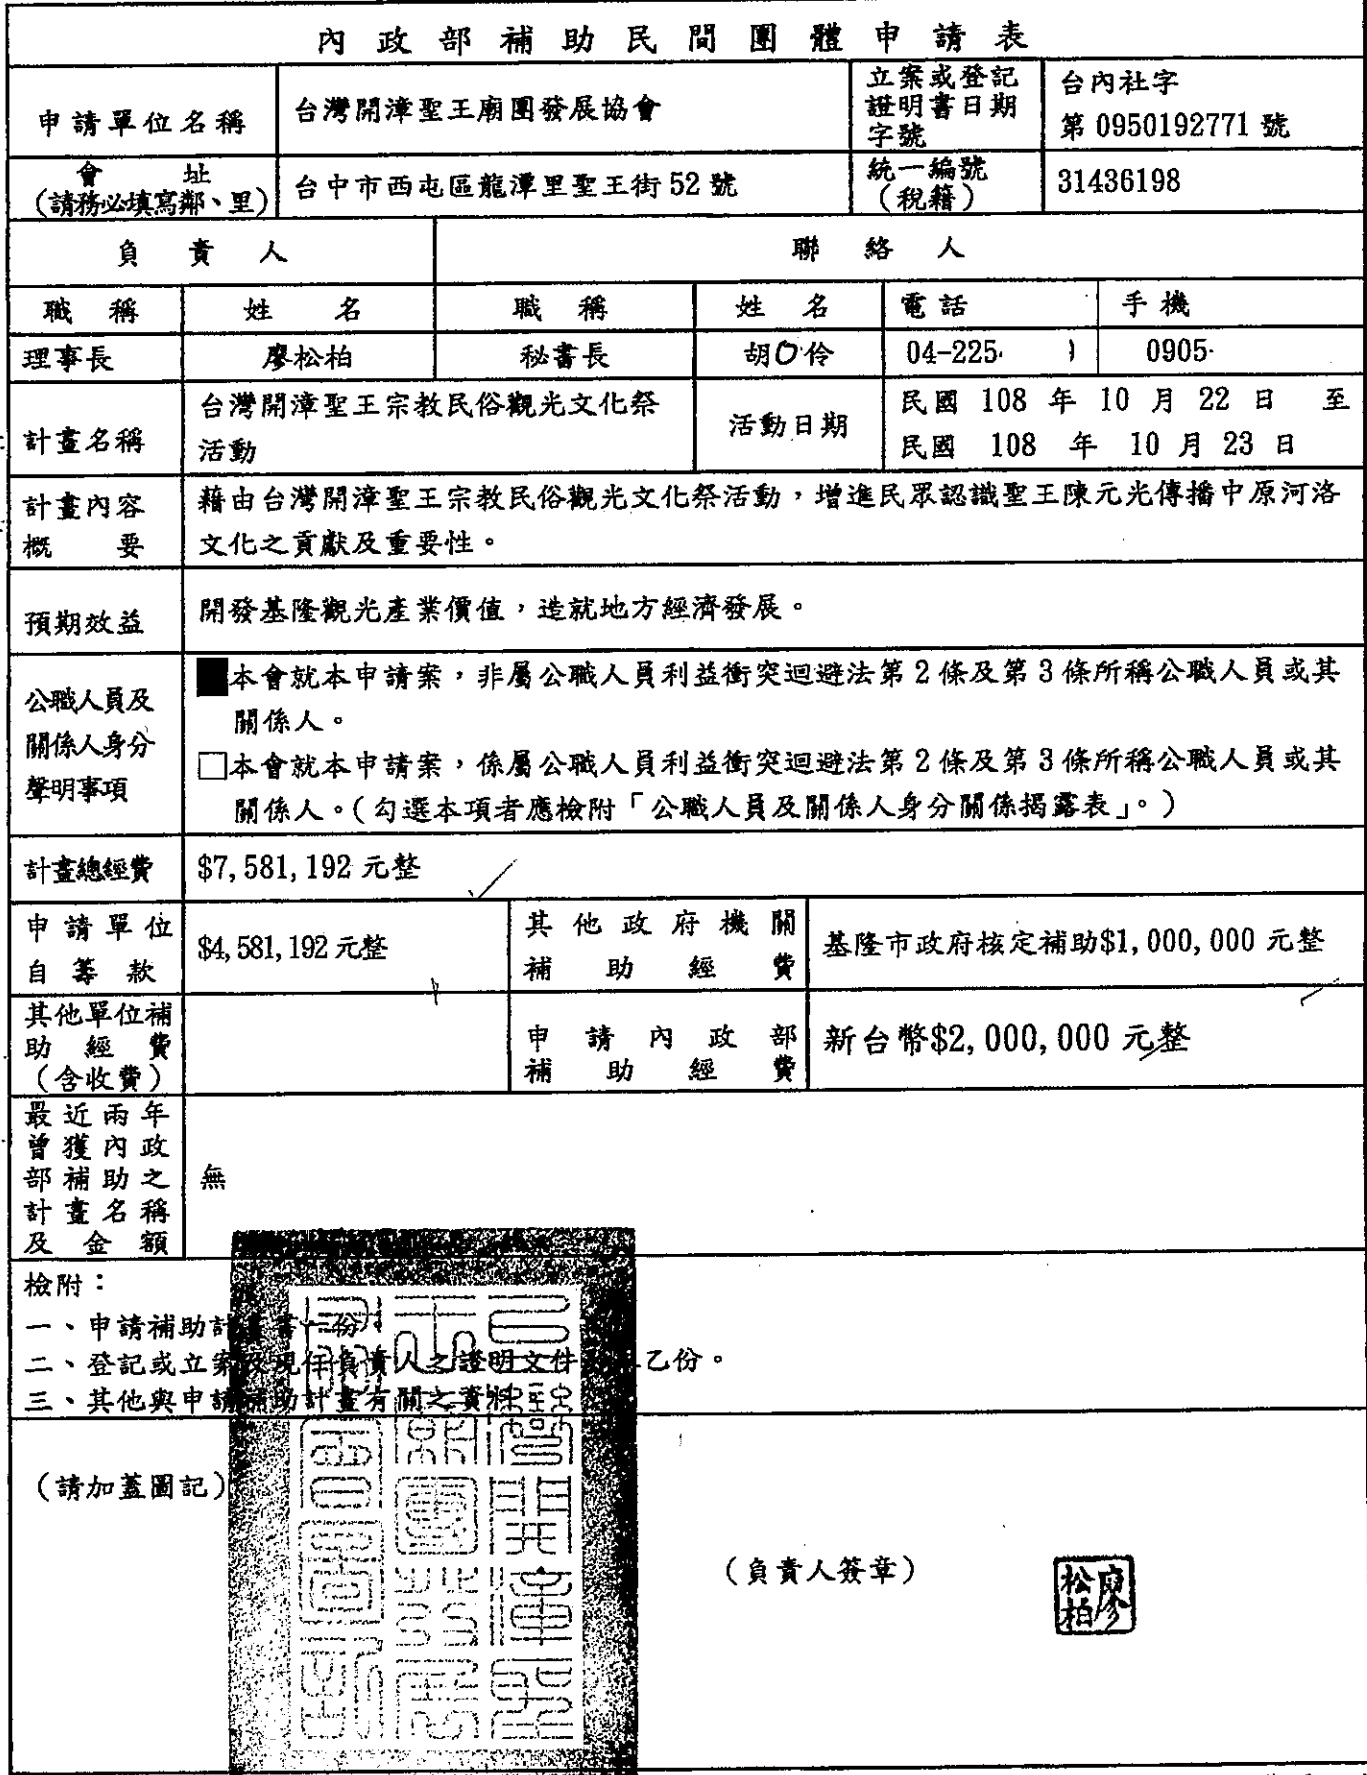 內政部補助民間團體申請表
申請單位名稱 台灣開漳聖王廟團發展協會 立案或登記證明書日期字號 台內社字
第 0950192771 號
會址
(請務必填寫鄰、里) 台中市西屯區龍潭里聖王街 52 號 統一編號
(稅籍) 31436198
負責人 聯絡人
職稱 姓名 職稱 姓名 電話 手機
理事長 廖松柏 秘書長 胡O伶 04-225 0905
計畫名稱 台灣開漳聖王宗教民俗觀光文化祭
活動 活動日期 民國 108 年 10 月 22 日 至
民國 108 年 10 月 23 日
計畫內容
概要 藉由台灣開漳聖王宗教民俗觀光文化祭活動，增進民眾認識聖王陳元光傳播中原河洛
文化之貢獻及重要性。
預期效益 開發基隆觀光產業價值，造就地方經濟發展。
公職人員及
關係人身分
聲明事項
■本會就本申請案，非屬公職人員利益衝突迴避法第 2 條及第 3 條所稱公職人員或其
關係人。
□本會就本申請案，係屬公職人員利益衝突迴避法第 2 條及第 3 條所稱公職人員或其
關係人。(勾選本項者應檢附「公職人員及關係人身分關係揭露表」。)
計畫總經費 $7,581,192 元整
申請單位
自籌款 $4,581,192 元整 其他政府機關
補助經費 基隆市政府核定補助$1,000,000 元整
其他單位補
助經費
(含收費) 申請內政部
補助經費 新台幣$2,000,000 元整
最近兩年
曾獲內政
部補助之
計畫名稱
及金額 無
檢附：
一、申請補助計畫書一份
二、登記或立案及現任負責人之證明文件 乙份。
三、其他與申請補助計畫有關之資料
(請加蓋圖記)
(負責人簽章)
廖松柏